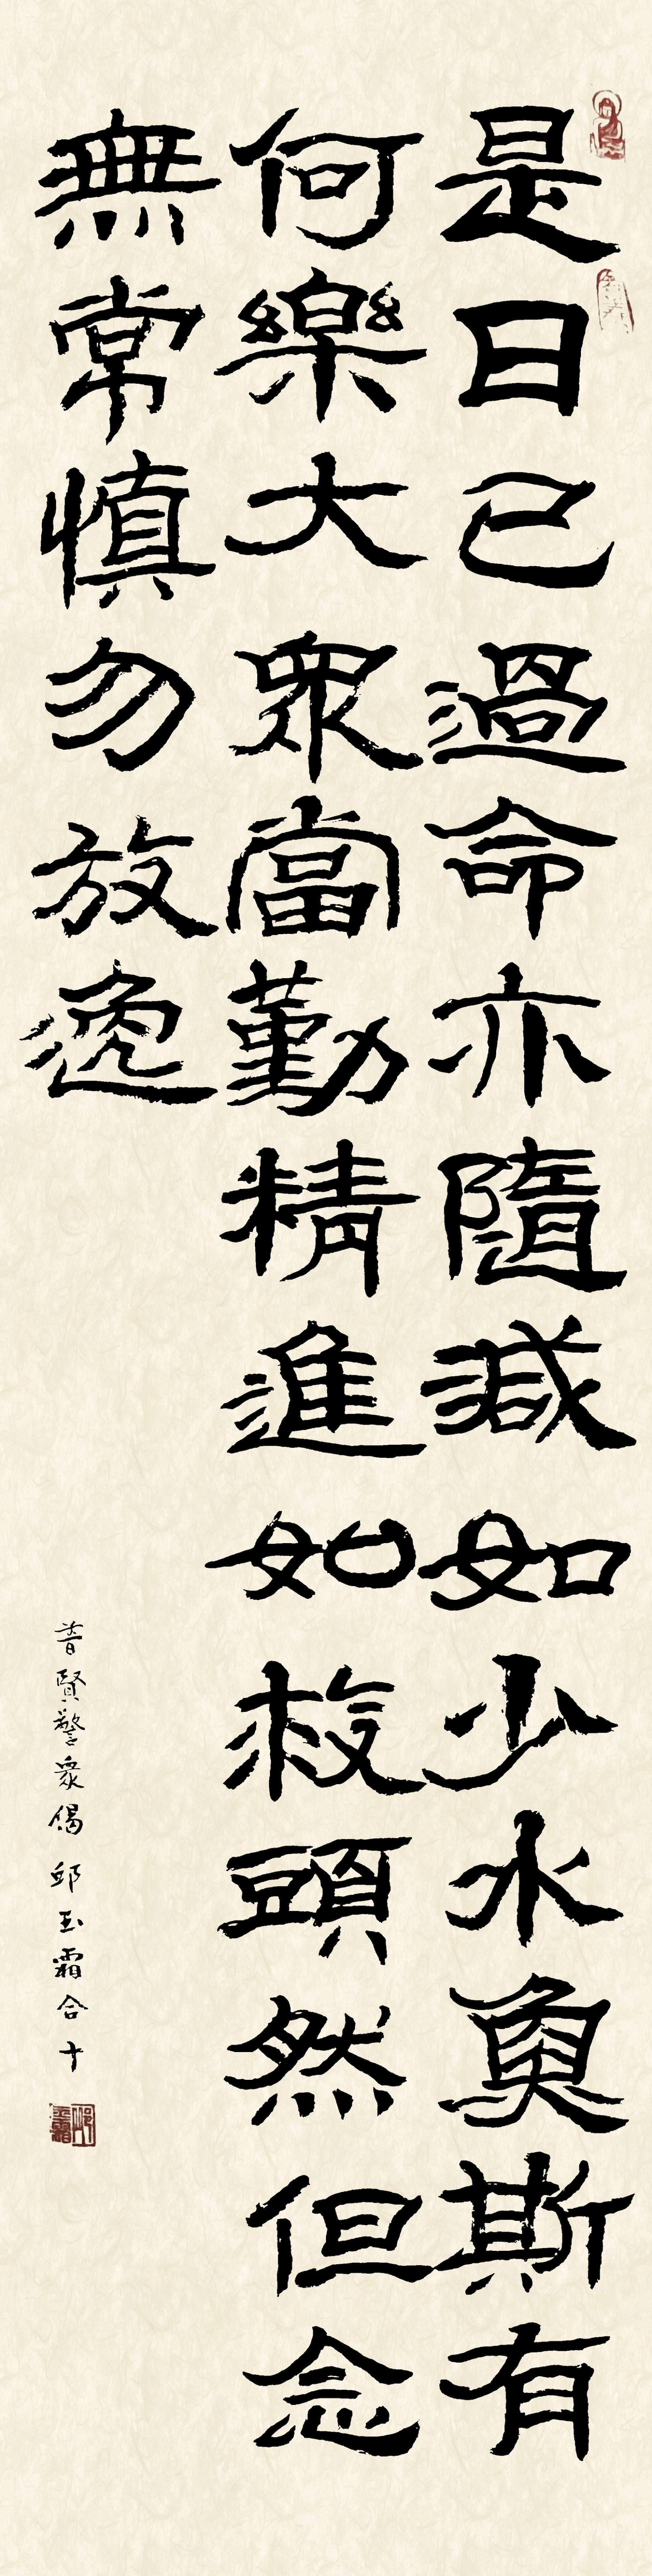 是日已過命亦隨減如少水魚斯有
何樂大眾當勤精進如救頭然但念
無常慎勿放逸
普賢警衆偈 邱玉霜合十